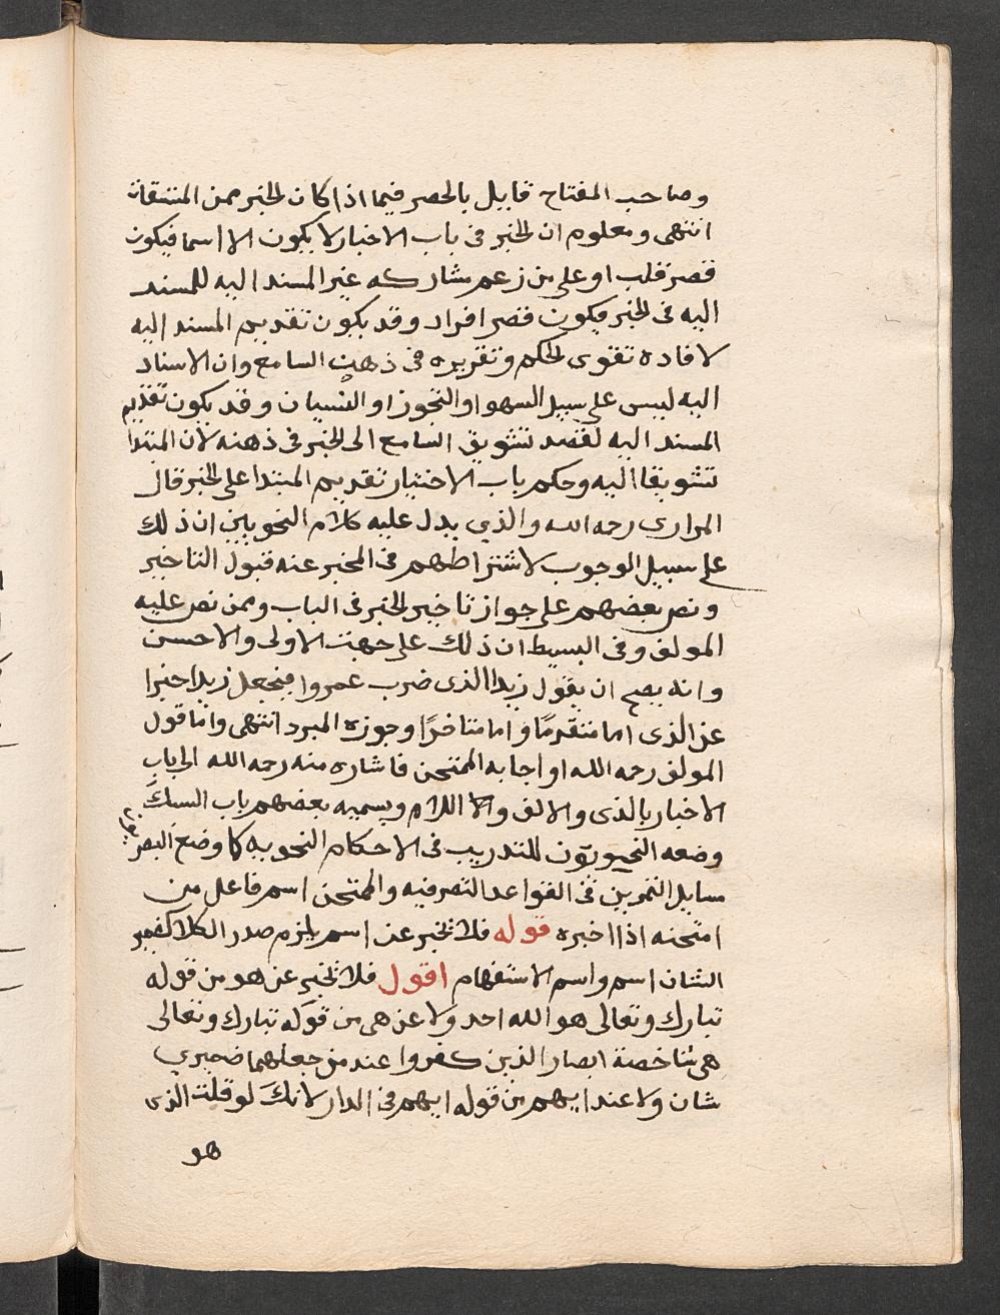 وصاحب المفتاح قايل بالحصر فيما اذا كان الخبر من المشتقات
انتهى ومعلوم ان الخبر فى باب الاخبار لا يكون الا اسما فيكون
قصر قلب او على من زعم مشاركه غير المسند اليه للمسند
اليه فى الخبر فيكون قصر افراد وقد يكون تقديم المسند اليه
لافادة تقوى الحكم وتقريره فى ذهن السامع وان الاسناد
اليه ليس على سبيل السهو او التجوز او النسيان وقد يكون تقديم
المسند اليه لقصد تشويق السامع الى الخبر فى ذهنه لان المبتدا
تشويقا اليه وحكم باب الاختيار تقديم المبتدا على الخبر قال
المرادى رحمه الله والذي يدل عليه كلام النحويين ان ذلك
على سبيل الوجوب لاشتراطهم فى المخبر عنه قبول التاخير
ونص بعضهم على جواز تاخير الخبر فى الباب وممن نص عليه
المولف وفى البسيط ان ذلك على جهت الاولى والاحسن
وانه يصح ان يقول زيدا الذى ضرب عمروا فيجعل زيدا خبرا
عن الذى اما متقدمًا واما متاخرًا وجوزه المبرد انتهى واما قول
المولف رحمه الله او اجابه الممتحن فاشاره منه رحمه الله الى باب
الاخبار بالذى والالف والا اللام ويسميه بعضهم باب السبك
وضعه النحيويون للتدريب فى الاحكام النحويه كما وضع البصر
يون
مسايل التمرين فى القواعد التصرفيه والممتحن اسم فاعل من
امتحنه اذا اخبره قوله فلا تخبر عن اسم يلزم صدر الكلا كضمير
الشان اسم واسم الاستفهام اقول فلا تخبر عن هو من قوله
تبارك وتعالى هو الله احد ولا عن هى من قوله تبارك وتعالى
هى شاخصة ابصار الذين كفروا عند من جعلهما ضميري
شان ولا عند ايهم من قوله ايهم فى الدار لانك لو قلت الذى
هو